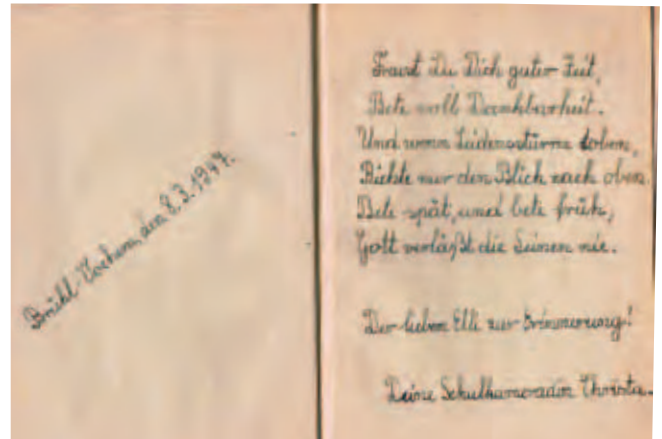 Brühl-Vochem, den 8.3.1947.
Freust Du Dich guter Zeit,
Bete voll Dankbarkeit.
Und wenn Leidensstürme toben,
Richte nur den Blick nach oben.
Bete spät, und bete früh,
Gott verläßt die Seinen nie.
Der lieben Elli zur Erinnerung!
Deine Schulkameradin Christa.